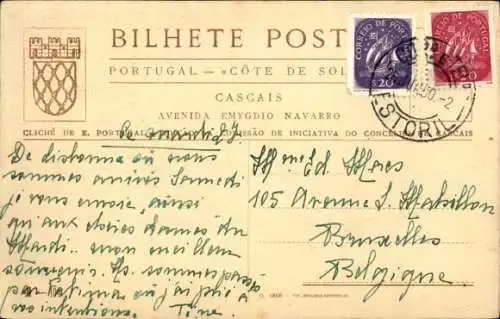 BILHETE POST
PORTUGAL — «CÔTE DE SOL
CASCAIS
AVENIDA EMYGDIO NAVARRO
CLICHÉ DE E. PORTUGAL COMISSÃO DE INICIATIVA DO CONCELHO CASCAIS
CORREIO DE PORTUGAL
$20
CORREIO DE PORTUGAL
$20
ESTORIL
Ce mardi 27
De Lisbonne où nous
sommes arrivés Samedi
je vous envoie, ainsi
qu'aux chères dames du
Mardi.. mon meilleur
souvenir. Ns. sommes passés
par Fatima où j'ai prié à
vos intentions. Tine.
Mme Ed Maes
105 Avenue S. Mabillon
Bruxelles
Belgique